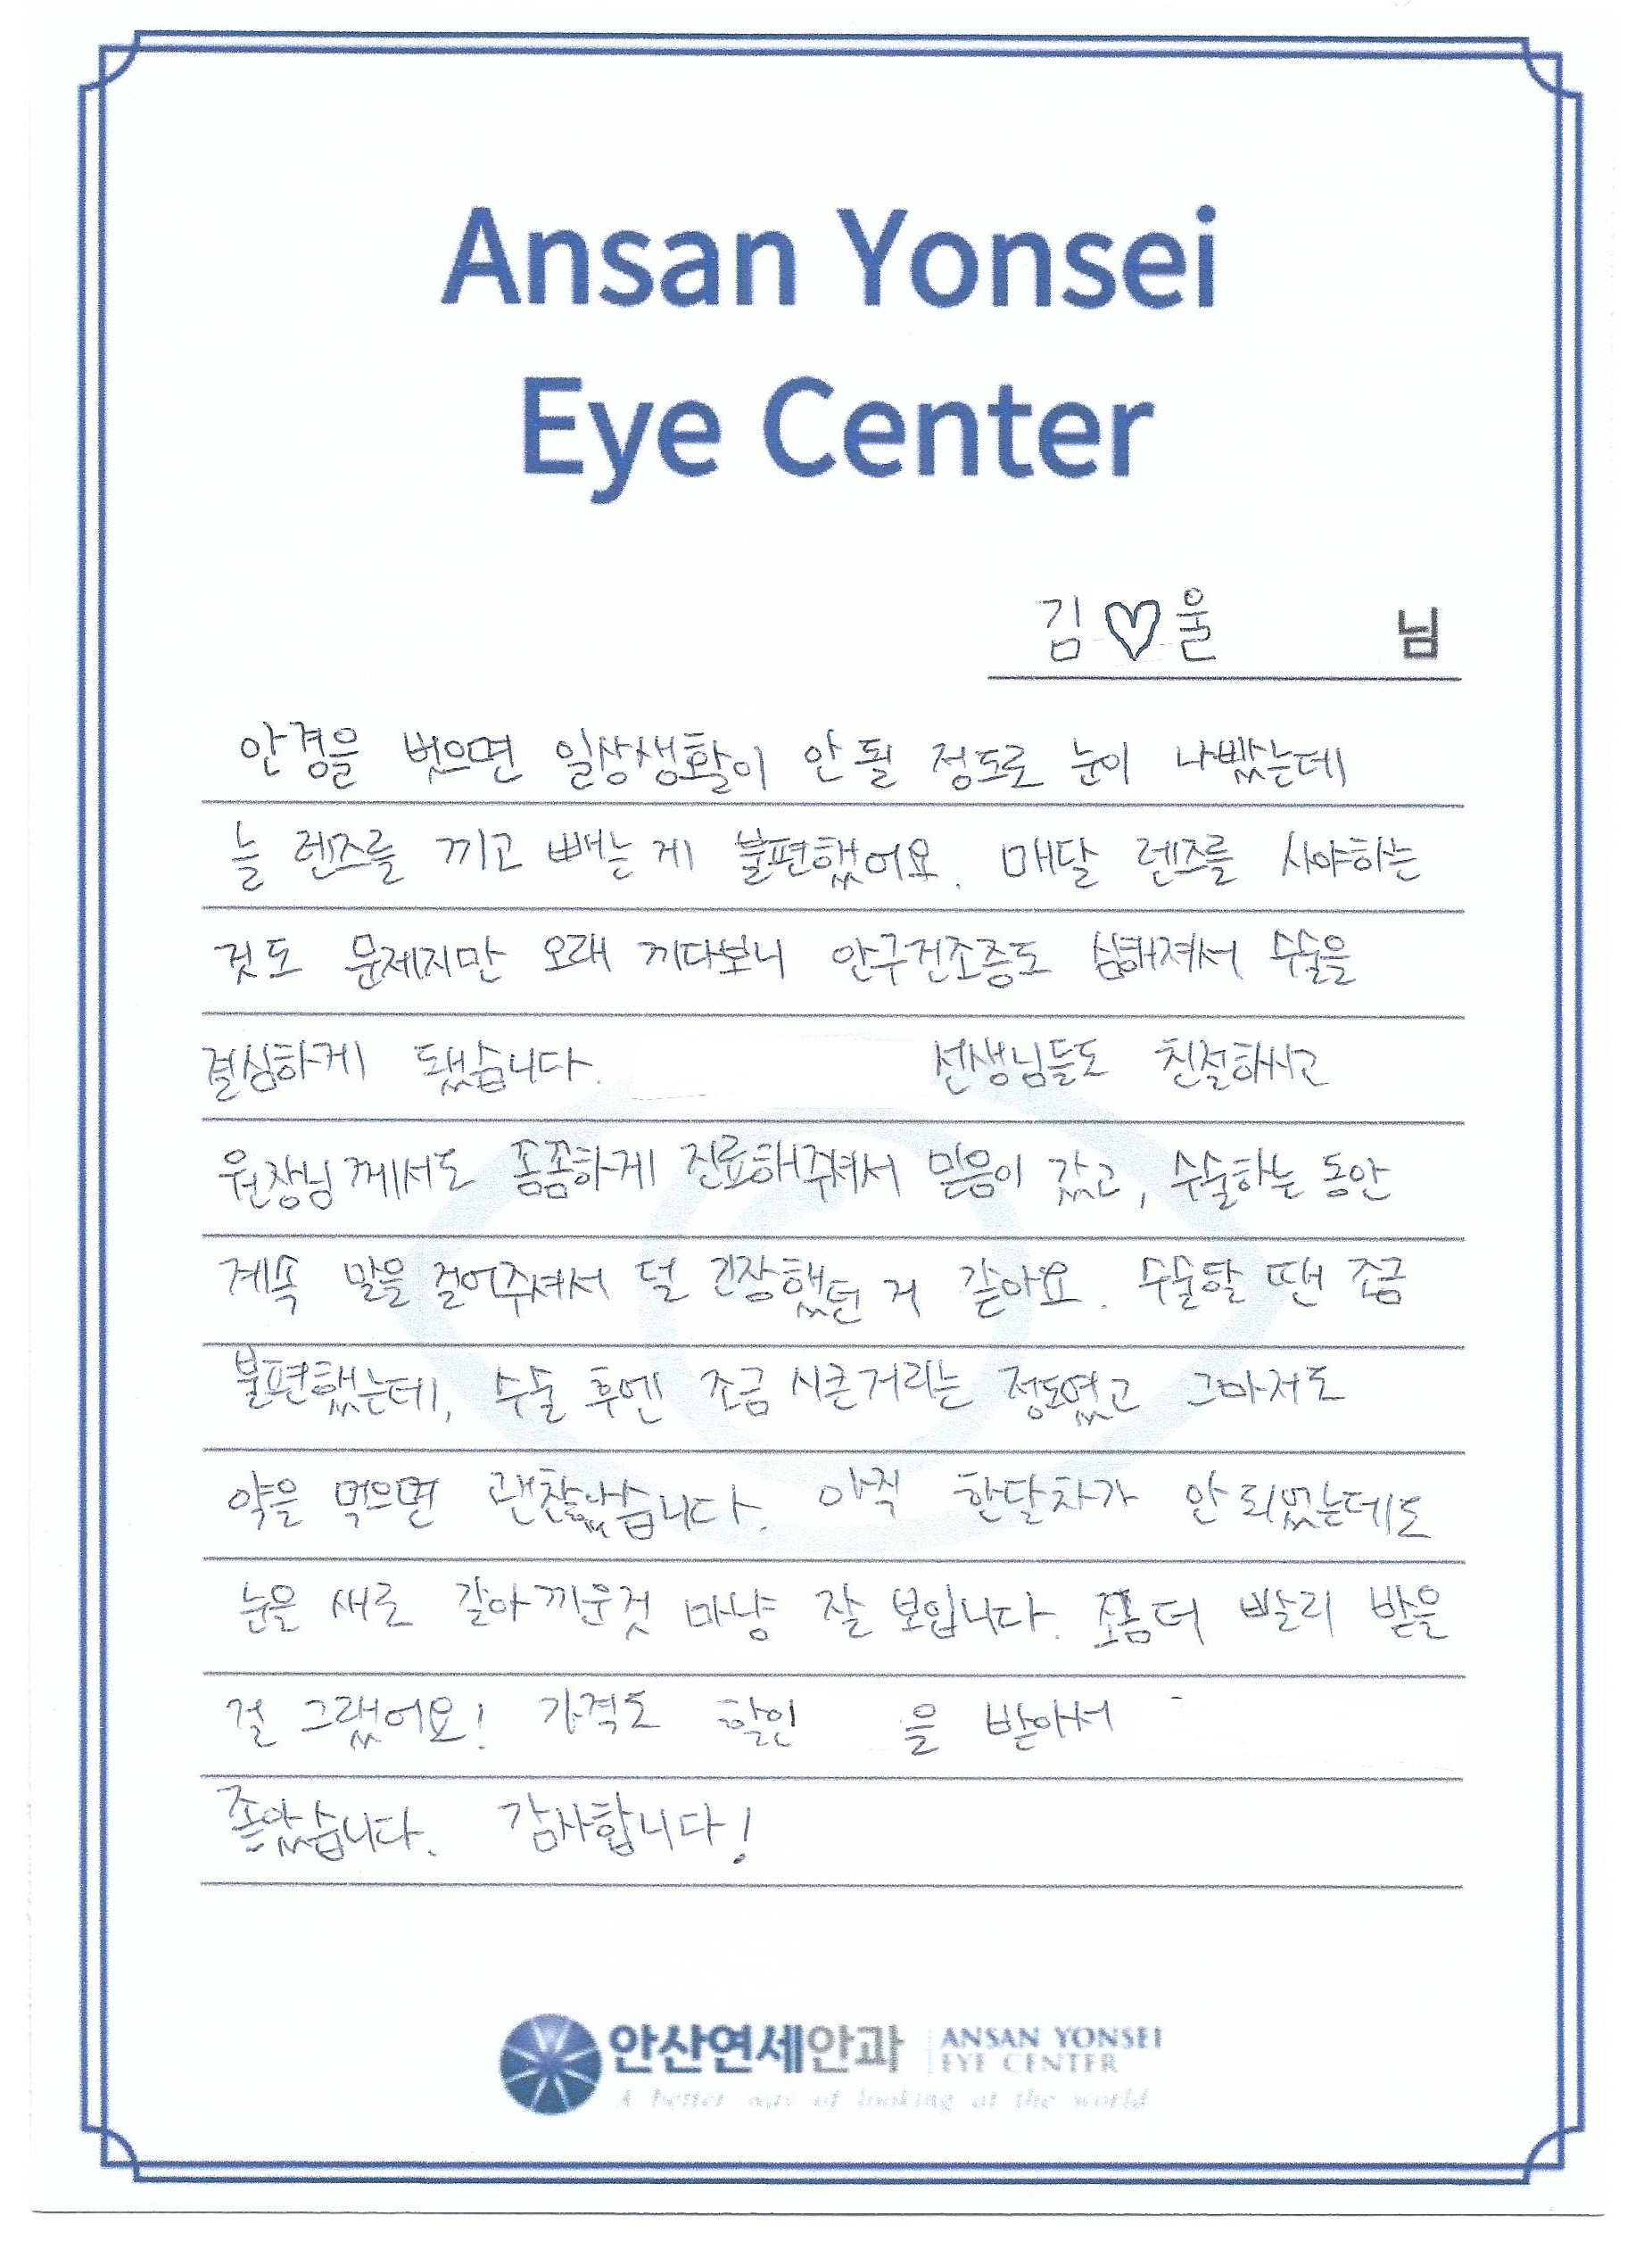 Ansan Yonsei
Eye Center
김♡울 님
안경을 벗으면 일상생활이 안될 정도로 눈이 나빴는데
늘 렌즈를 끼고 빼는 게 불편했어요. 매달 렌즈를 사야하는
것도 문제지만 오래 끼다보니 안구건조증도 심해져서 수술을
결심하게 됐습니다. 선생님들도 친절하시고
원장님께서도 꼼꼼하게 진료해주셔서 믿음이 갔고, 수술하는 동안
계속 말을 걸어주셔서 덜 긴장했던 거 같아요. 수술할 땐 조금
불편했는데, 수술 후엔 조금 시큰거리는 정도였고 그마저도
약을 먹으면 괜찮았습니다. 아직 한달차가 안되었는데도
눈을 새로 갈아끼운것 마냥 잘 보입니다. 좀 더 빨리 받을
걸 그랬어요! 가격도 할인 을 받아서
좋았습니다. 감사합니다!
안산연세안과 ANSAN YONSEI
EYE CENTER
A better way of looking at the world